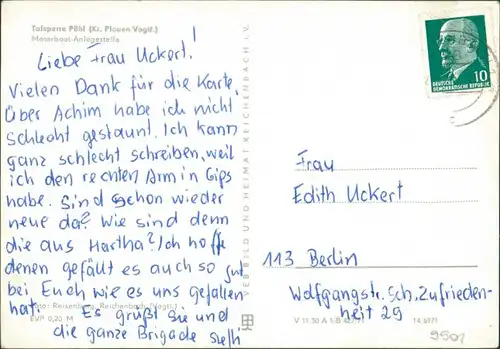 Talsperre Pöhl (Kr. Plauen Vogtl.)
Motorboot-Anlegestelle
Liebe Frau Uckert!
Vielen Dank für die Karte,
über Achim habe ich nicht
schlecht gestaunt. Ich kann
ganz schlecht schreiben, weil
ich den rechten Arm in Gips
habe. Sind schon wieder
neue da? Wie sind denn
die aus Hartha? Ich hoffe
denen gefällt es auch so gut
bei Euch wie es uns gefallen
hat. Es grüßt Sie und
die ganze Brigade
Foto: Reisenberg, Reichenbach (Vogtl.)
EVP 0,20 M
VEB BILD UND HEIMAT REICHENBACH i. V.
10
DEUTSCHE
DEMOKRATISCHE REPUBLIK
Frau
Edith Uckert
113 Berlin
Wolfgangstr. Sch. Zufrieden-
heit 29
V 11 50 A 1/B
9501